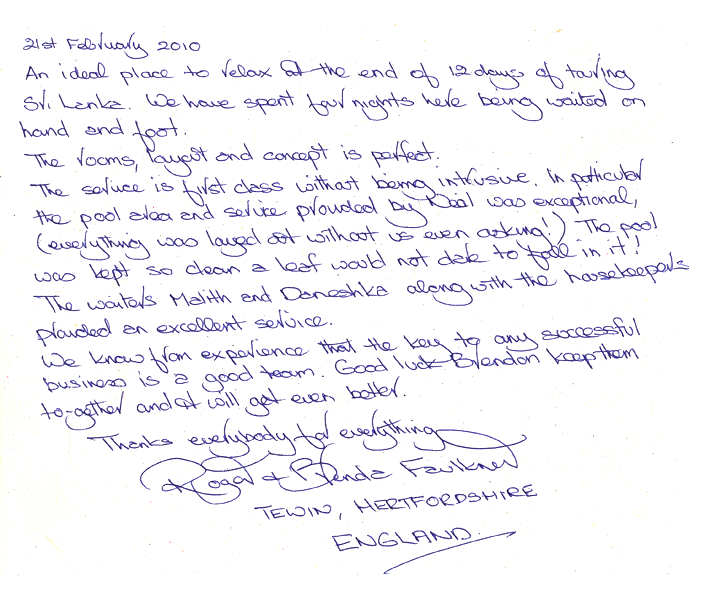 21st February 2010
An ideal place to relax at the end of 12 days of touring
Sri. Lanka. We have spent four nights here being waited on
hand and foot.
The rooms, layout and concept is perfect.
The service is first class without being intrusive. In particular
the pool area and service provided by was exceptional,
(everything was layed out without us even asking!) The pool
was kept so clean a leaf would not dare to fall in it!
The waiters Malith and Daneshka along with the housekeepers
provided an excellent service.
We know from experience that the key to any successful
business is a good team. Good luck Brendon keep them
to-gether and it will get even better.
Thanks everybody for everything
Roger & Brenda Faulkner
TEWIN, HERTFORDSHIRE
ENGLAND.